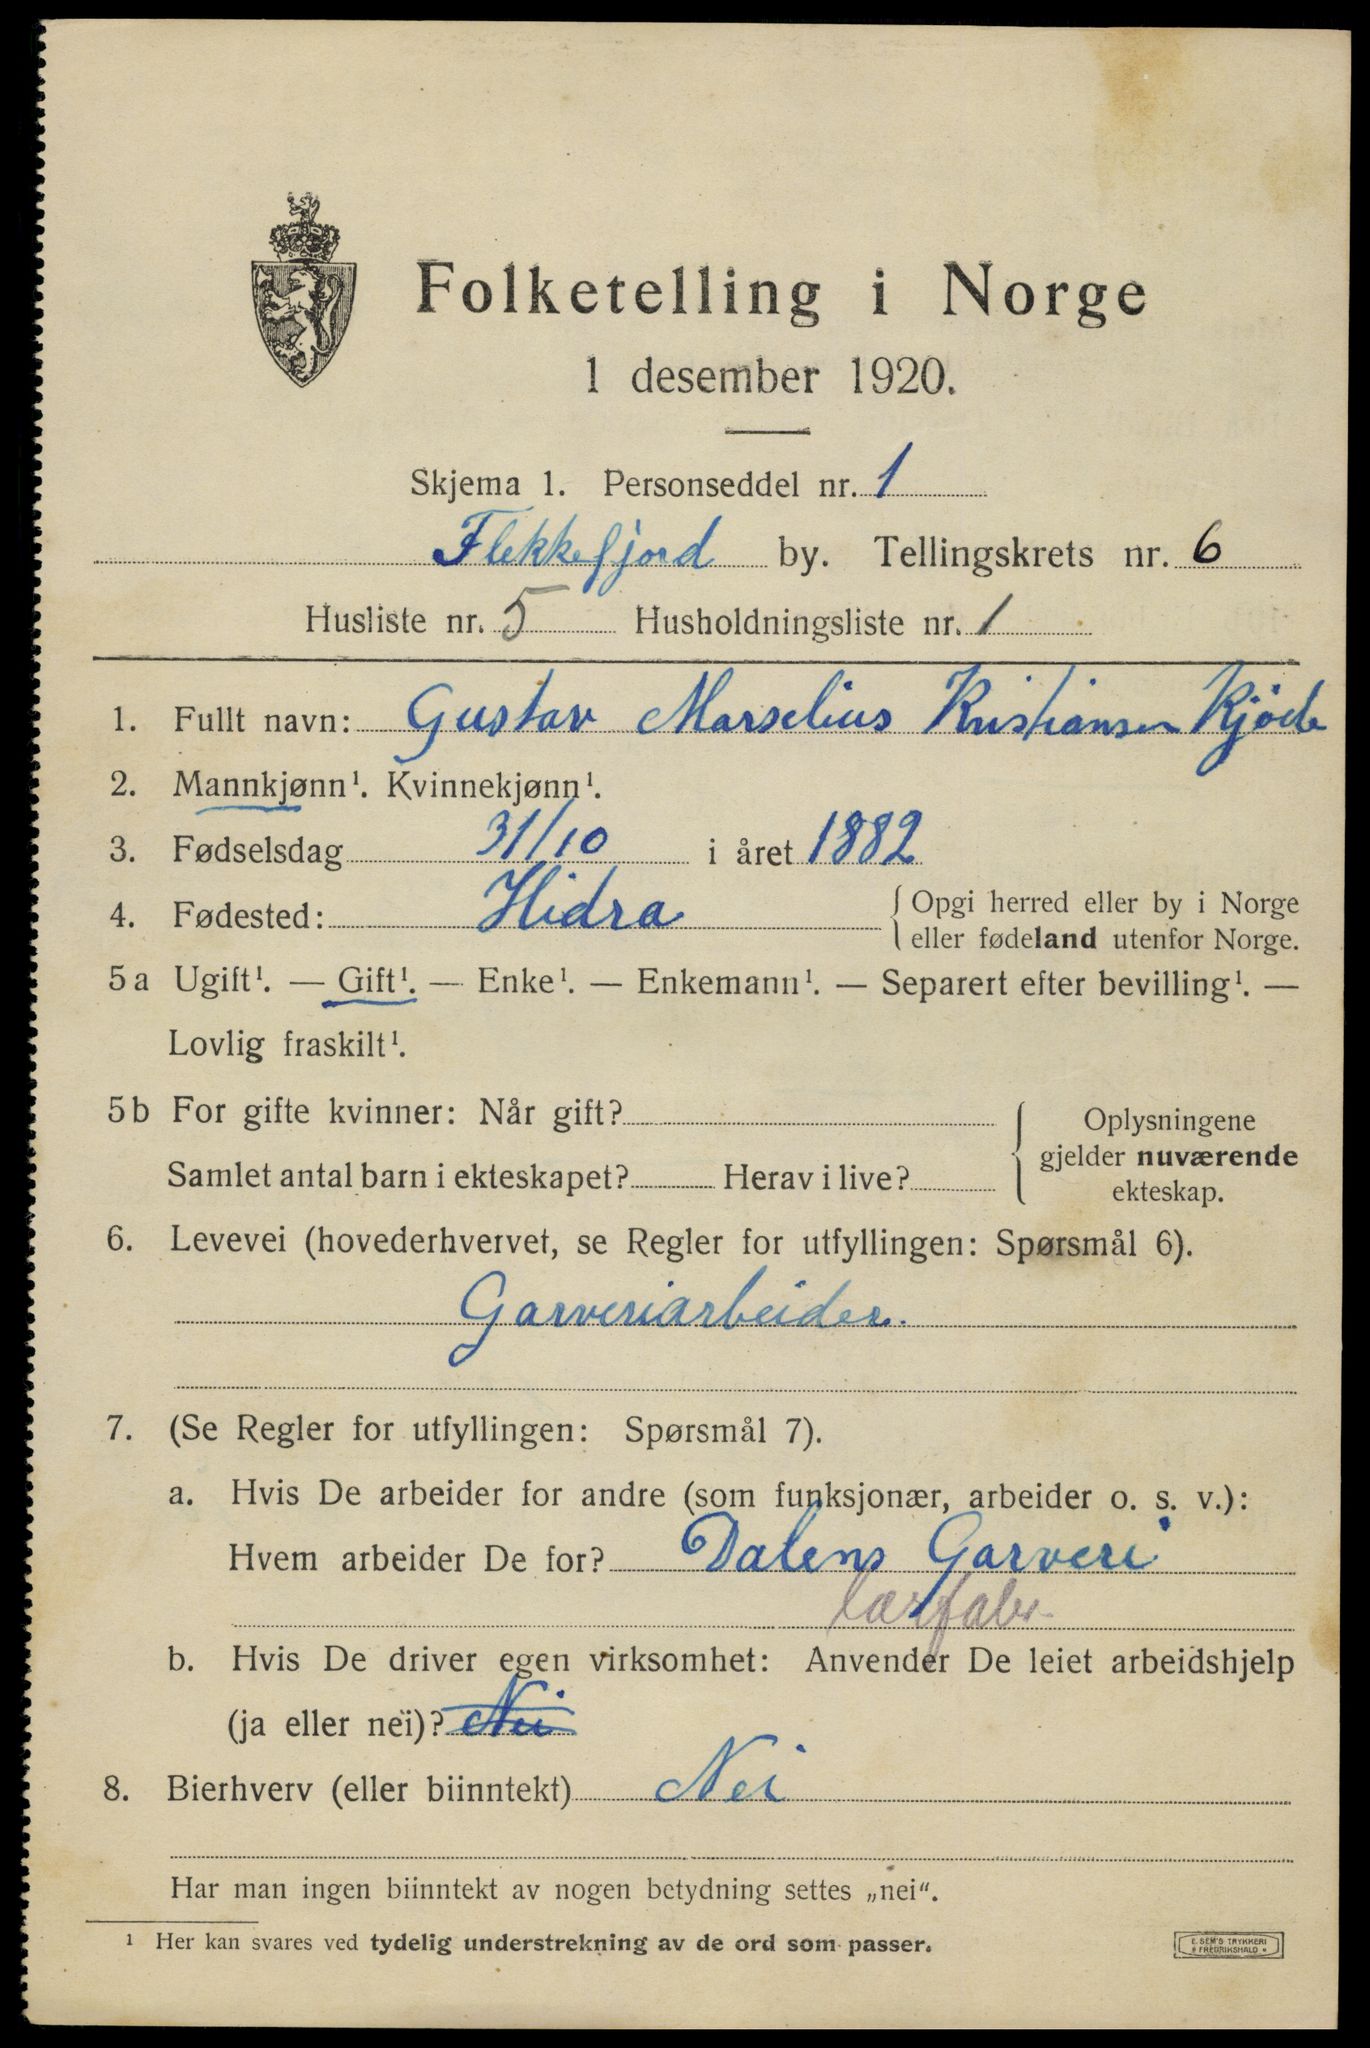 Folketelling i Norge
1 desember 1920.
Skjema 1. Personseddel nr. 1
Flekkefjord by. Tellingskrets nr. 6
Husliste nr. 5 Husholdningsliste nr. 1
1. Fullt navn: Gustav Marselius Kristiansen
2. Mannkjønn¹. Kvinnekjønn¹.
3. Fødselsdag 31/10 i året 1882
4. Fødested: Hidra { Opgi herred eller by i Norge
eller fødeland utenfor Norge.
5a Ugift¹. — Gift¹. — Enke¹. — Enkemann¹. — Separert efter bevilling¹. —
Lovlig fraskilt¹.
5b For gifte kvinner: Når gift? { Oplysningene
gjelder nuværende
Samlet antal barn i ekteskapet? Herav i live?
ekteskap.
6. Levevei (hovederhvervet, se Regler for utfyllingen: Spørsmål 6).
Garveriarbeider.
7. (Se Regler for utfyllingen: Spørsmål 7).
a. Hvis De arbeider for andre (som funksjonær, arbeider o. s. v.):
Hvem arbeider De for? Dalens Garveri
lærfabr.
b. Hvis De driver egen virksomhet: Anvender De leiet arbeidshjelp
(ja eller nei)? Nei
8. Bierhverv (eller biinntekt) Nei
Har man ingen biinntekt av nogen betydning settes „nei“.
¹ Her kan svares ved tydelig understrekning av de ord som passer.
E. SEM'S TRYKKERI
FREDRIKSHALD